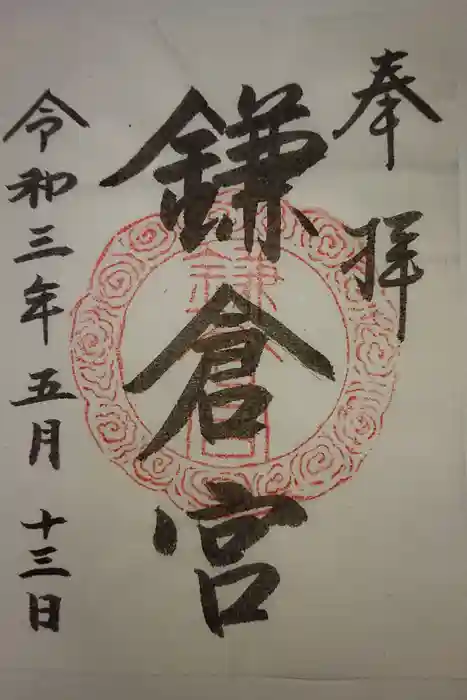 奉拝
鎌倉宮
令和三年五月十三日